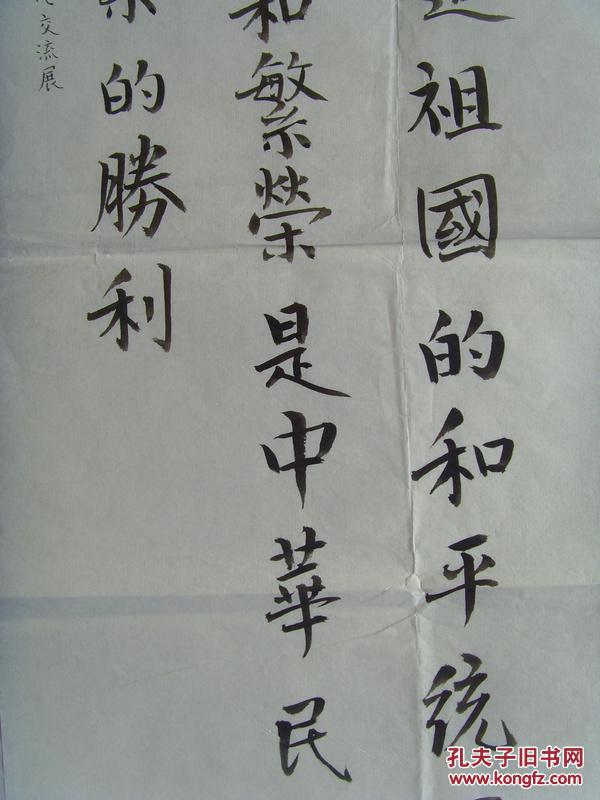 祖國的和平統
和繁榮是中華民
的勝利
交流展
孔夫子旧书网
www.kongfz.com